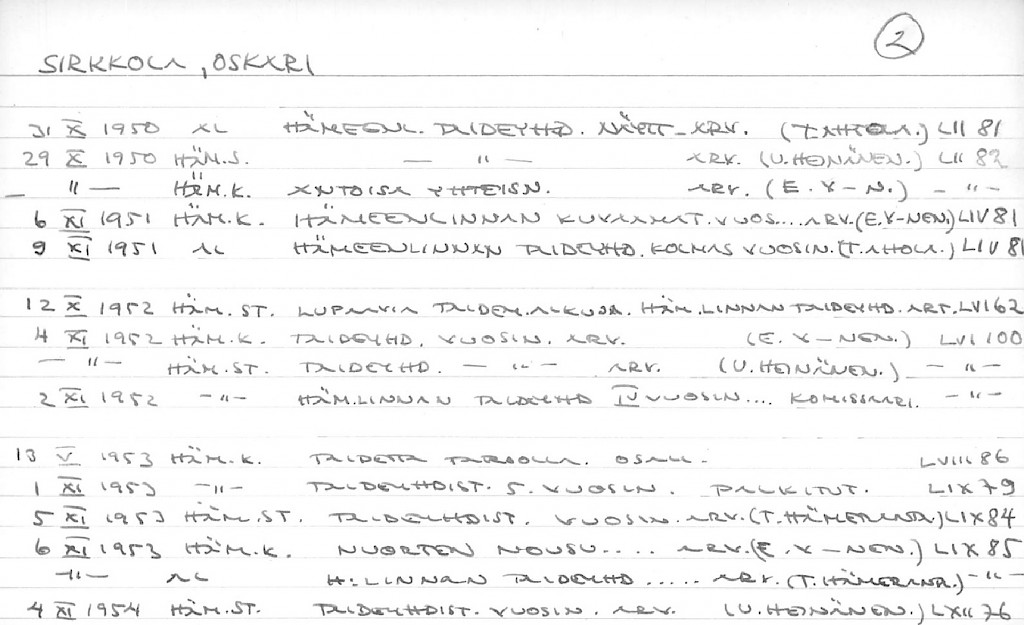 2
SIRKKOLA, OSKARI
31 X 1950 AL HÄMEENL. TAIDEYHD. NÄYTT_ARV. (T. AHTOLA.) LII 81
29 X 1950 HÄM.S. — " — ARV. (U. HEINÄNEN.) LII 82
— " — HÄM.K. ANTOISA YHTEISN. ARV. (E. Y-N.) — " —
6 XI 1951 HÄM.K. HÄMEENLINNAN KUVAAMAT. VUOS.... ARV. (E.Y-NEN.) LIV 81
9 XI 1951 AL HÄMEENLINNAN TAIDEYHD. KOLMAS VUOSIN. (T. AHOLA.) LIV 81
12 X 1952 HÄM. ST. LUPAAVIA TAIDEM. ALKUJA. HÄM.LINNAN TAIDEYHD. ART. LVI 62
4 XI 1952 HÄM.K. TAIDEYHD. VUOSIN. ARV. (E. Y-NEN.) LVI 100
— " — HÄM.ST. TAIDEYHD. — " — ARV. (U. HEINÄNEN.) — " —
2 XI 1952 — " — HÄM.LINNAN TAIDEYHD IV VUOSIN.... KOMISSAARI. — " —
13 V 1953 HÄM.K. TAIDETTA TARJOLLA. OSALL. LVIII 86
1 XI 1953 — " — TAIDEYHDIST. 5. VUOSIN. PALKITUT. LIX 79
5 XI 1953 HÄM.ST. TAIDEYHDIST. VUOSIN. ARV. (T. HÄMERANTA.) LIX 84
6 XI 1953 HÄM.K. NUORTEN NOUSU.... ARV. (E. Y-NEN.) LIX 85
— " — AL H:LINNAN TAIDEYHD..... ARV. (T. HÄMERANTA.) — " —
4 XI 1954 HÄM.ST. TAIDEYHDIST. VUOSIN. ARV. (U. HEINÄNEN.) LXII 76